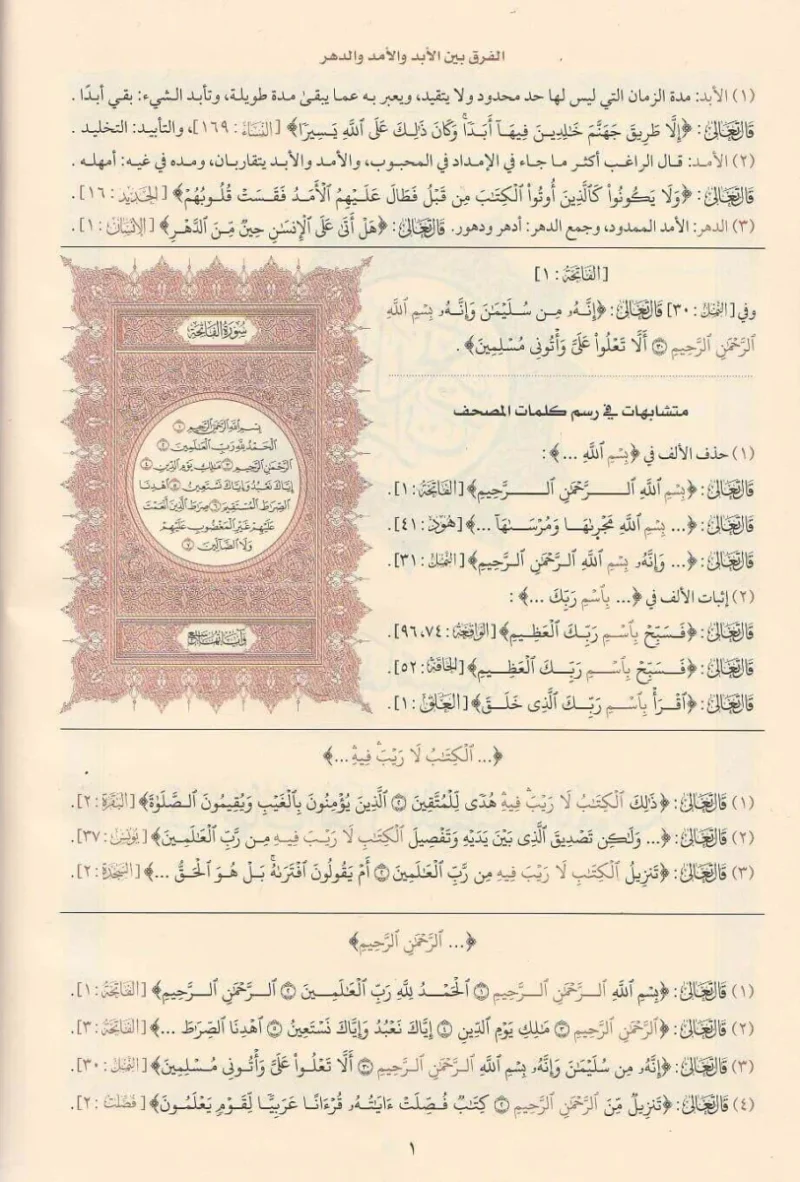 الفرق بين الأبد والأمد والدهر
(١) الأبد: مدة الزمان التي ليس لها حد محدود ولا يتقيد، ويعبر به عما يبقىٰ مدة طويلة، وتأبد الشيء: بقي أبدًا .
قَالَ تَعَالَىٰ: ﴿إِلَّا طَرِيقَ جَهَنَّمَ خَٰلِدِينَ فِيهَآ أَبَدًاۚ وَكَانَ ذَٰلِكَ عَلَى ٱللَّهِ يَسِيرًا﴾ [النِّسَاء: ١٦٩]، والتأبيد: التخليد .
(٢) الأمد: قال الراغب أكثر ما جاء في الإمداد في المحبوب، والأمد والأبد يتقاربان، ومده في غيه: أمهله .
قَالَ تَعَالَىٰ: ﴿وَلَا يَكُونُوا۟ كَٱلَّذِينَ أُوتُوا۟ ٱلْكِتَٰبَ مِن قَبْلُ فَطَالَ عَلَيْهِمُ ٱلْأَمَدُ فَقَسَتْ قُلُوبُهُمْ﴾ [الحَدِيد: ١٦].
(٣) الدهر: الأمد الممدود، وجمع الدهر: أدهر ودهور. قَالَ تَعَالَىٰ: ﴿هَلْ أَتَىٰ عَلَى ٱلْإِنسَٰنِ حِينٌ مِّنَ ٱلدَّهْرِ﴾ [الإِنسَان: ١].
[الفَاتِحَة: ١]
وفي [النَّمل: ٣٠] قَالَ تَعَالَىٰ: ﴿إِنَّهُۥ مِن سُلَيْمَٰنَ وَإِنَّهُۥ بِسْمِ ٱللَّهِ
ٱلرَّحْمَٰنِ ٱلرَّحِيمِ ۝٣٠ أَلَّا تَعْلُوا۟ عَلَىَّ وَأْتُونِى مُسْلِمِينَ﴾ .
متشابهات في رسم كلمات المصحف
(١) حذف الألف في ﴿بِسْمِ ٱللَّهِ ...﴾ :
قَالَ تَعَالَىٰ: ﴿بِسْمِ ٱللَّهِ ٱلرَّحْمَٰنِ ٱلرَّحِيمِ﴾ [الفَاتِحَة: ١].
قَالَ تَعَالَىٰ: ﴿... بِسْمِ ٱللَّهِ مَجْر۪ىٰهَا وَمُرْسَىٰهَآ ...﴾ [هُود: ٤١].
قَالَ تَعَالَىٰ: ﴿... وَإِنَّهُۥ بِسْمِ ٱللَّهِ ٱلرَّحْمَٰنِ ٱلرَّحِيمِ﴾ [النَّمل: ٣١].
(٢) إثبات الألف في ﴿... بِٱسْمِ رَبِّكَ ...﴾ :
قَالَ تَعَالَىٰ: ﴿فَسَبِّحْ بِٱسْمِ رَبِّكَ ٱلْعَظِيمِ﴾ [الوَاقِعَة: ٧٤، ٩٦].
قَالَ تَعَالَىٰ: ﴿فَسَبِّحْ بِٱسْمِ رَبِّكَ ٱلْعَظِيمِ﴾ [الحَاقَّة: ٥٢].
قَالَ تَعَالَىٰ: ﴿ٱقْرَأْ بِٱسْمِ رَبِّكَ ٱلَّذِى خَلَقَ﴾ [العَلَق: ١].
سُورَةُ الفَاتِحَةِ
بِسْمِ ٱللَّهِ ٱلرَّحْمَٰنِ ٱلرَّحِيمِ ۝١
ٱلْحَمْدُ لِلَّهِ رَبِّ ٱلْعَٰلَمِينَ ۝٢
ٱلرَّحْمَٰنِ ٱلرَّحِيمِ ۝٣ مَٰلِكِ يَوْمِ ٱلدِّينِ ۝٤
إِيَّاكَ نَعْبُدُ وَإِيَّاكَ نَسْتَعِينُ ۝٥ ٱهْدِنَا
ٱلصِّرَٰطَ ٱلْمُسْتَقِيمَ ۝٦ صِرَٰطَ ٱلَّذِينَ أَنْعَمْتَ
عَلَيْهِمْ غَيْرِ ٱلْمَغْضُوبِ عَلَيْهِمْ
وَلَا ٱلضَّآلِّينَ ۝٧
وَآيَاتُهَا سَبْعٌ
﴿... ٱلْكِتَٰبُ لَا رَيْبَۛ فِيهِۛ ...﴾
(١) قَالَ تَعَالَىٰ: ﴿ذَٰلِكَ ٱلْكِتَٰبُ لَا رَيْبَۛ فِيهِۛ هُدًى لِّلْمُتَّقِينَ ۝٢ ٱلَّذِينَ يُؤْمِنُونَ بِٱلْغَيْبِ وَيُقِيمُونَ ٱلصَّلَوٰةَ﴾ [البَقَرَة: ٢].
(٢) قَالَ تَعَالَىٰ: ﴿... وَلَٰكِن تَصْدِيقَ ٱلَّذِى بَيْنَ يَدَيْهِ وَتَفْصِيلَ ٱلْكِتَٰبِ لَا رَيْبَ فِيهِ مِن رَّبِّ ٱلْعَٰلَمِينَ﴾ [يُونُس: ٣٧].
(٣) قَالَ تَعَالَىٰ: ﴿تَنزِيلُ ٱلْكِتَٰبِ لَا رَيْبَ فِيهِ مِن رَّبِّ ٱلْعَٰلَمِينَ ۝٢ أَمْ يَقُولُونَ ٱفْتَرَىٰهُۚ بَلْ هُوَ ٱلْحَقُّ ...﴾ [السَّجْدَة: ٢].
﴿... ٱلرَّحْمَٰنِ ٱلرَّحِيمِ﴾
(١) قَالَ تَعَالَىٰ: ﴿بِسْمِ ٱللَّهِ ٱلرَّحْمَٰنِ ٱلرَّحِيمِ ۝١ ٱلْحَمْدُ لِلَّهِ رَبِّ ٱلْعَٰلَمِينَ ۝٢ ٱلرَّحْمَٰنِ ٱلرَّحِيمِ﴾ [الفَاتِحَة: ١].
(٢) قَالَ تَعَالَىٰ: ﴿ٱلرَّحْمَٰنِ ٱلرَّحِيمِ ۝٣ مَٰلِكِ يَوْمِ ٱلدِّينِ ۝٤ إِيَّاكَ نَعْبُدُ وَإِيَّاكَ نَسْتَعِينُ ۝٥ ٱهْدِنَا ٱلصِّرَٰطَ ...﴾ [الفَاتِحَة: ٣].
(٣) قَالَ تَعَالَىٰ: ﴿إِنَّهُۥ مِن سُلَيْمَٰنَ وَإِنَّهُۥ بِسْمِ ٱللَّهِ ٱلرَّحْمَٰنِ ٱلرَّحِيمِ ۝٣٠ أَلَّا تَعْلُوا۟ عَلَىَّ وَأْتُونِى مُسْلِمِينَ﴾ [النَّمل: ٣٠].
(٤) قَالَ تَعَالَىٰ: ﴿تَنزِيلٌ مِّنَ ٱلرَّحْمَٰنِ ٱلرَّحِيمِ ۝٢ كِتَٰبٌ فُصِّلَتْ ءَايَٰتُهُۥ قُرْءَانًا عَرَبِيًّا لِّقَوْمٍ يَعْلَمُونَ﴾ [فُصِّلَت: ٢].
١